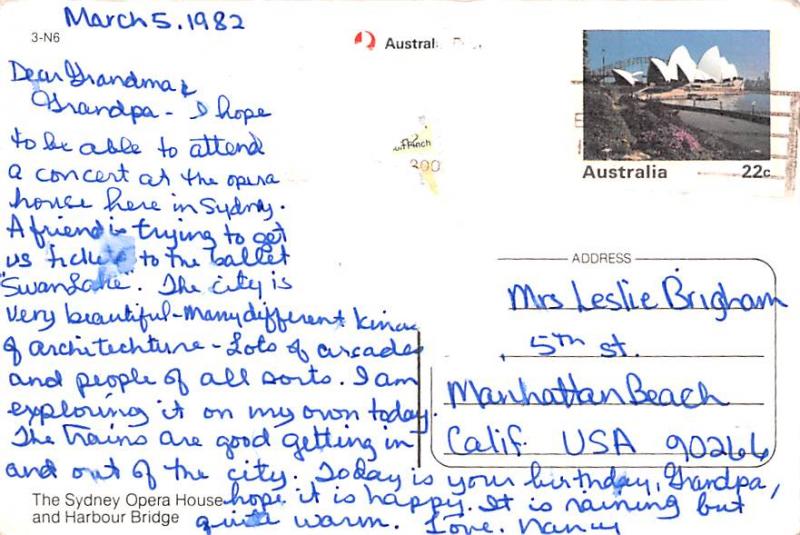 March 5, 1982
3-N6
Australia Post
Dear Grandma &
Grandpa - I hope
to be able to attend
a concert at the opera
house here in Sydney.
A friend is trying to get
us tickets to the ballet
"Swan Lake". The city is
very beautiful - Many different kinds
of architechture - Lots of arcades
and people of all sorts. I am
exploring it on my own today.
The trains are good getting in
and out of the city. Today is your birthday, Grandpa,
hope it is happy. It is raining but
quite warm. Love, Nancy
The Sydney Opera House
and Harbour Bridge
Finch
300
Australia 22c
ADDRESS
Mrs Leslie Brigham
5th st.
Manhattan Beach
Calif. USA 90266